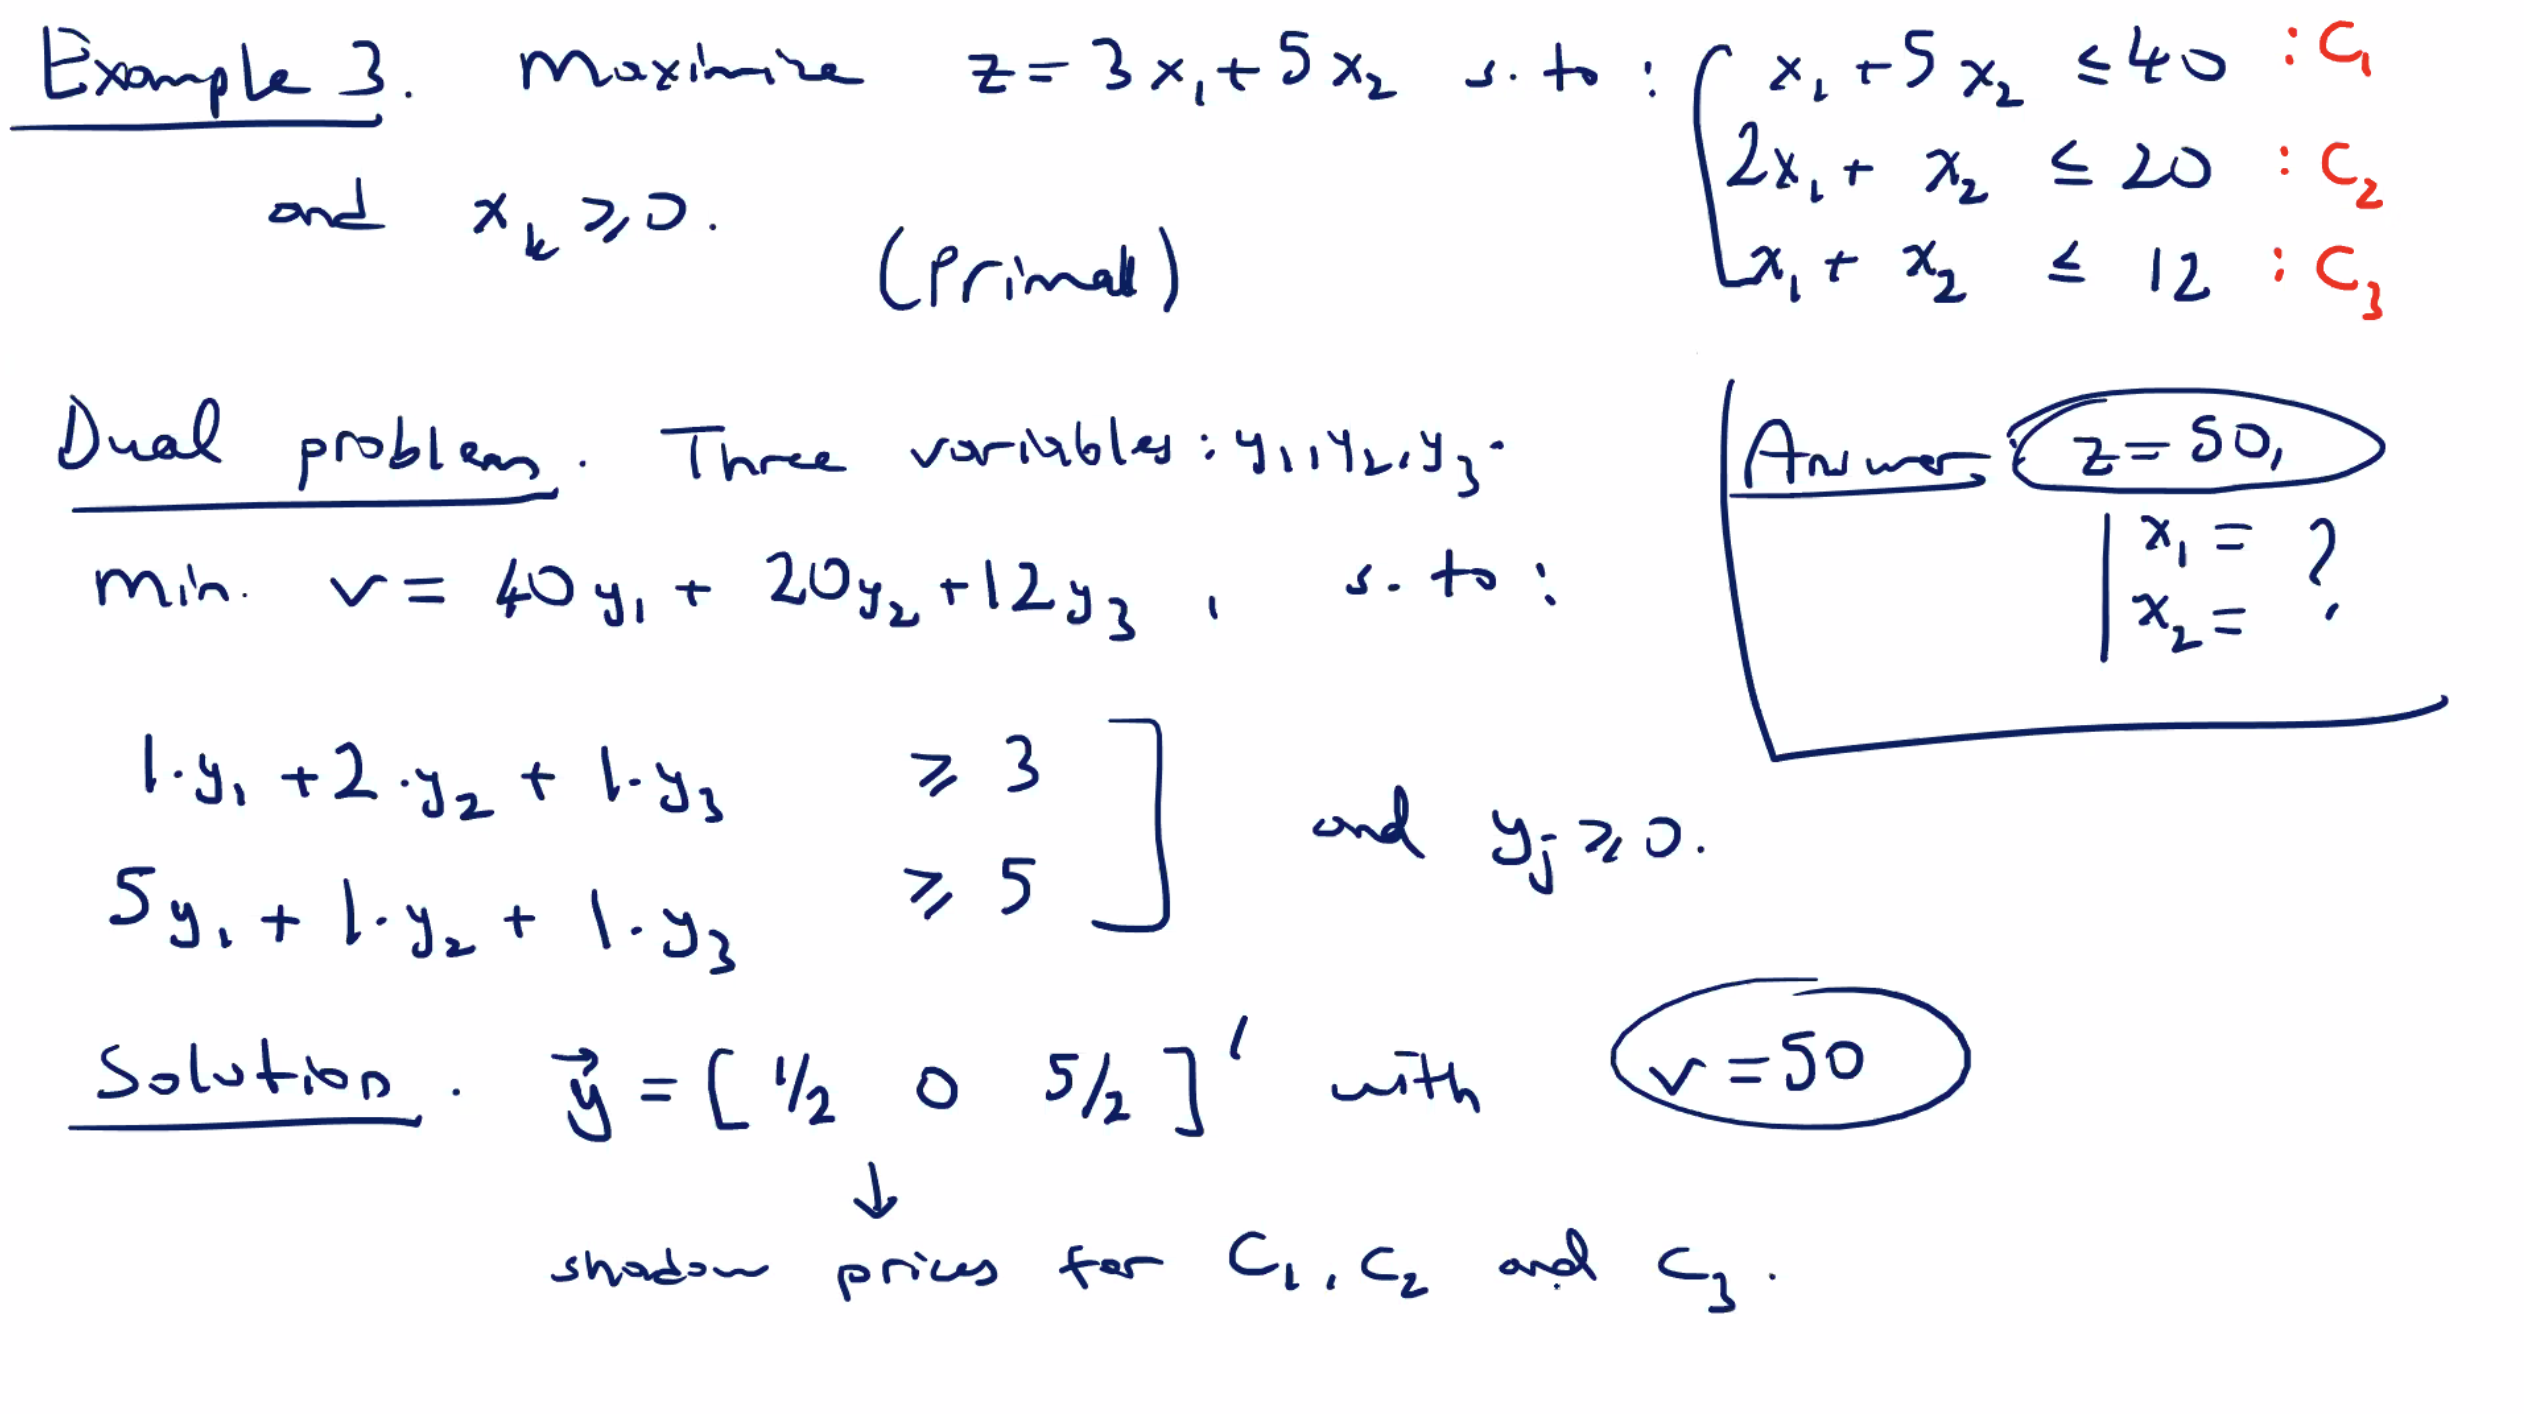 Example 3. Maximize z = 3x₁ + 5x₂ s. to : x₁ + 5x₂ ≤ 40 : C₁
2x₁ + x₂ ≤ 20 : C₂
and xₖ ≥ 0.
(Primal) x₁ + x₂ ≤ 12 : C₃
Dual problem. Three variables : y₁, y₂, y₃.
Answer: z = 50,
x₁ = ?
x₂ =
min. v = 40y₁ + 20y₂ + 12y₃, s. to :
1·y₁ + 2·y₂ + 1·y₃ ≥ 3
5y₁ + 1·y₂ + 1·y₃ ≥ 5
and yⱼ ≥ 0.
Solution. y⃗ = [ 1/2 0 5/2 ]' with v = 50
↓
shadow prices for C₁, C₂ and C₃.